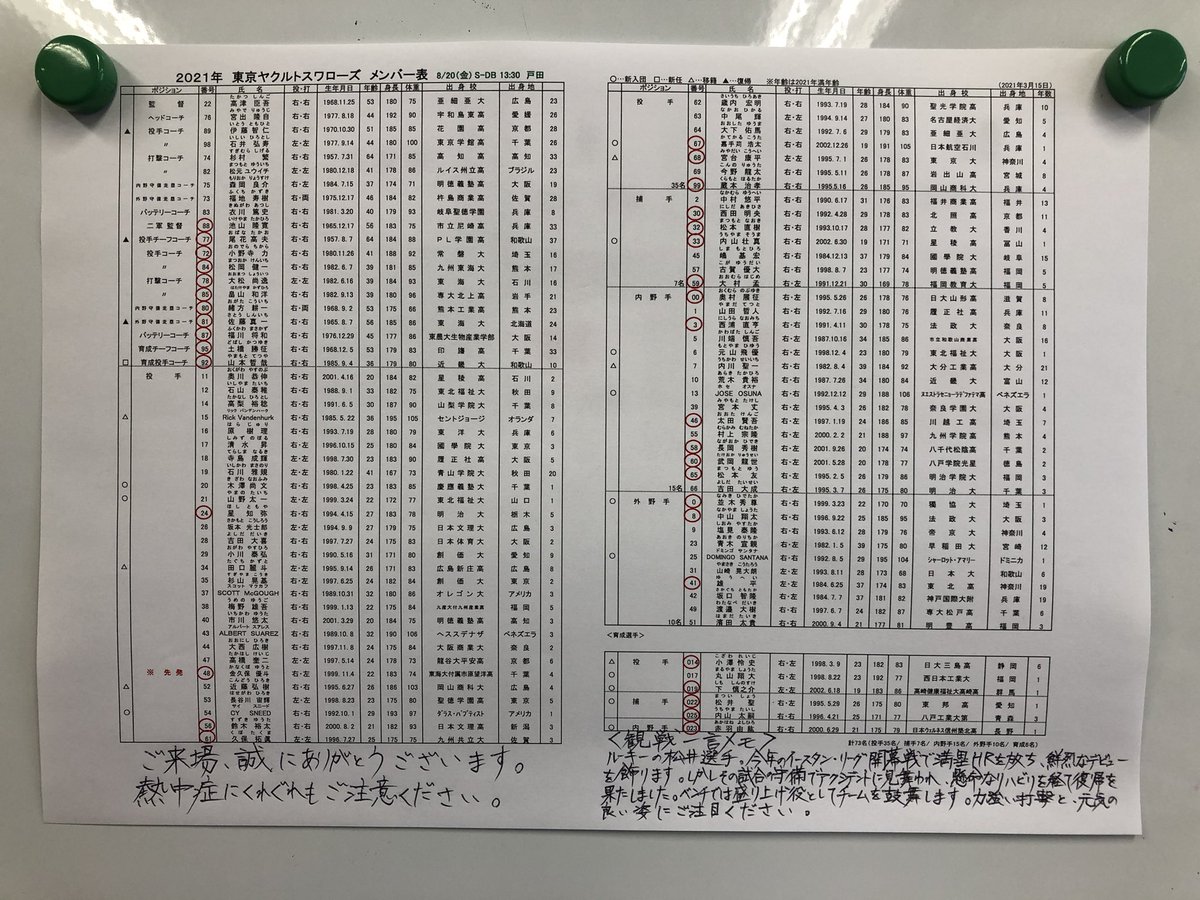 2021年 東京ヤクルトスワローズ メンバー表 8/20(金) S-DB 13:30 戸田
ポジション 番号 投・打 生年月日 年齢 身長 体重 出身校 出身地 年数
監督 22 高津 臣吾 右・右 1968.11.25 53 180 75 亜細亜大 広島 23
ヘッドコーチ 76 宮出 隆自 右・右 1977.8.18 44 192 90 宇和島東高 愛媛 26
▲ 投手コーチ 89 伊藤 智仁 右・右 1970.10.30 51 189 85 花園高 京都 28
〃 98 石井 弘寿 左・左 1977.9.14 44 180 100 東京学館高 千葉 26
打撃コーチ 74 杉村 繁 右・右 1957.7.31 64 171 85 高知高 高知 33
〃 82 松元 ユウイチ 左・左 1980.12.18 41 178 86 ルイス州立高 ブラジル 23
内野守備走塁コーチ 75 森岡 良介 右・左 1984.7.15 37 174 71 明徳義塾高 大阪 19
外野守備走塁コーチ 73 福地 寿樹 右・両 1975.12.17 46 174 75 杵島商業高 佐賀 28
バッテリーコーチ 83 衣川 篤史 右・右 1981.3.20 40 179 93 岐阜聖徳学園 兵庫 8
二軍監督 88 池山 隆寛 右・右 1965.12.17 56 183 75 市立尼崎高 兵庫 33
▲ 投手チーフコーチ 77 尾花 高夫 右・右 1957.8.7 64 184 87 PL学園高 和歌山 37
投手コーチ 72 小野寺 力 右・右 1980.11.26 41 188 92 常磐大 埼玉 16
〃 84 松岡 健一 右・右 1982.6.7 39 181 85 九州東海大 熊本 17
打撃コーチ 78 大松 尚逸 右・左 1982.6.16 39 184 92 東海大 石川 16
〃 85 畠山 和洋 右・右 1982.9.13 39 180 96 専大北上高 岩手 21
内野守備走塁コーチ 80 緒方 耕一 右・両 1968.9.2 53 175 66 熊本工業高 熊本 23
▲ 外野守備走塁コーチ 81 佐藤 真一 右・右 1965.8.7 56 186 86 東海大 北海道 24
バッテリーコーチ 87 福川 将和 右・右 1976.12.29 45 177 86 東農大生物産業学部 大阪 14
育成チーフコーチ 95 土橋 勝征 右・右 1968.12.5 53 179 83 印旛高 千葉 33
□ 育成投手コーチ 92 山本 哲哉 右・右 1985.9.4 36 179 80 近畿大 和歌山 10
投手 11 奥川 恭伸 右・右 2001.4.16 20 184 82 星稜高 石川 2
12 石山 泰稚 右・右 1988.9.1 33 182 75 東北福祉大 秋田 9
14 高梨 裕稔 右・右 1991.6.5 30 187 90 山梨学院大 千葉 8
△ 15 Rick Vandenhurk 右・右 1985.5.22 36 195 105 セントジョージ オランダ 7
16 原 樹理 右・右 1993.7.19 28 180 79 東洋大 兵庫 6
17 清水 昇 右・左 1996.10.15 25 180 84 國學院大 東京 3
18 寺島 成輝 左・左 1998.7.30 23 183 90 履正社高 大阪 5
19 石川 雅規 左・左 1980.1.22 41 167 73 青山学院大 秋田 20
○ 20 木澤 尚文 右・右 1998.4.25 23 183 85 慶應義塾大 千葉 1
○ 21 山野 太一 左・左 1999.3.24 22 172 77 東北福祉大 山口 1
24 星 知弥 右・右 1994.4.15 27 183 78 明治大 栃木 5
26 坂本 光士郎 左・左 1994.9.9 27 179 75 日本文理大 広島 3
28 吉田 大喜 右・右 1997.7.27 24 175 78 日本体育大 大阪 2
29 小川 泰弘 右・右 1990.5.16 31 171 80 創価大 愛知 9
△ 34 田口 麗斗 左・左 1995.9.14 26 171 83 広島新庄高 広島 8
35 杉山 晃基 右・左 1997.6.25 24 182 84 創価大 東京 2
37 SCOTT McGOUGH 右・右 1989.10.31 32 180 86 オレゴン大 アメリカ 3
38 梅野 雄吾 右・右 1999.1.13 22 175 84 九産大付九州産業高 福岡 5
40 市川 悠太 右・右 2001.3.29 20 184 75 明徳義塾高 高知 3
43 ALBERT SUAREZ 右・右 1989.10.8 32 190 106 ヘススデナザ ベネズエラ 3
44 大西 広樹 右・右 1997.11.8 24 177 84 大阪商業大 奈良 2
47 高橋 奎二 左・左 1997.5.14 24 178 73 龍谷大平安高 京都 6
※先発 48 金久保 優斗 右・左 1999.11.4 22 183 74 東海大付属市原望洋高 千葉 4
△ 52 近藤 弘樹 右・右 1995.6.27 26 183 104 岡山商科大 広島 4
53 長谷川 宙輝 左・左 1998.8.23 23 175 80 聖徳学園高 東京 5
○ 54 CY SNEED 右・右 1992.10.1 29 193 97 ダラス・バプティスト アメリカ 1
56 鈴木 裕太 右・右 2000.8.2 21 182 93 日本文理高 新潟 3
61 久保 拓眞 左・左 1996.7.27 25 175 77 九州共立大 佐賀 3
ご来場、誠にありがとうございます。
熱中症にくれぐれもご注意ください。
○…新入団 □…新任 △…移籍 ▲…復帰 ※年齢は2021年満年齢 (2021年3月15日)
ポジション 番号 投・打 生年月日 年齢 身長 体重 出身校 出身地 年数
投手 62 歳内 宏明 右・右 1993.7.19 28 184 90 聖光学院高 兵庫 10
63 中尾 輝 左・左 1994.9.14 27 180 83 名古屋経済大 愛知 5
64 大下 佑馬 右・右 1992.7.6 29 179 83 亜細亜大 広島 4
○ 67 嘉手苅 浩太 右・右 2002.12.26 19 191 105 日本航空石川 兵庫 1
△ 68 宮台 康平 左・左 1995.7.1 26 178 83 東京大 神奈川 4
69 今野 龍太 右・右 1995.5.11 26 178 85 岩出山高 宮城 8
35名 99 蔵本 治孝 右・右 1995.5.16 26 185 95 岡山商科大 兵庫 4
捕手 2 中村 悠平 右・右 1990.6.17 31 176 83 福井商業高 福井 13
30 西田 明央 右・右 1992.4.28 29 178 83 北照高 京都 11
32 松本 直樹 右・右 1993.10.17 28 177 82 立教大 香川 4
○ 33 内山 壮真 右・右 2002.6.30 19 171 71 星稜高 富山 1
45 嶋 基宏 右・右 1984.12.13 37 179 84 國學院大 岐阜 15
57 古賀 優大 右・右 1998.8.7 23 177 74 明徳義塾高 福岡 5
7名 59 大村 孟 右・左 1991.12.21 30 169 78 福岡教育大 福岡 5
内野手 00 奥村 展征 右・左 1995.5.26 26 178 78 日大山形高 滋賀 8
1 山田 哲人 右・右 1992.7.16 29 180 76 履正社高 兵庫 11
3 西浦 直亨 右・右 1991.4.11 30 178 75 法政大 奈良 8
5 川端 慎吾 右・左 1987.10.16 34 185 86 市立和歌山商業高 大阪 16
○ 6 元山 飛優 右・左 1998.12.4 23 180 79 東北福祉大 大阪 1
△ 7 内川 聖一 右・右 1982.8.4 39 184 92 大分工業高 大分 21
10 荒木 貴裕 右・右 1987.7.26 34 180 84 近畿大 富山 12
○ 13 JOSE OSUNA 右・右 1992.12.12 29 188 106 ヌエストラセニョーラデファティマ高 ベネズエラ 1
39 宮本 丈 右・左 1995.4.3 26 182 78 奈良学園大 大阪 4
46 太田 賢吾 右・左 1997.1.19 24 188 86 川越工高 埼玉 7
55 村上 宗隆 右・左 2000.2.2 21 188 97 九州学院高 熊本 4
58 長岡 秀樹 右・左 2001.9.26 20 174 74 八千代松陰高 千葉 2
60 武岡 龍世 右・左 2001.5.28 20 178 77 八戸学院光星 徳島 2
65 松本 友 右・左 1995.2.5 26 180 78 明治学院大 福岡 3
15名 66 吉田 大成 右・左 1995.3.7 26 176 78 明治大 千葉 3
○ 外野手 0 並木 秀尊 右・右 1999.3.23 22 170 70 獨協大 埼玉 1
8 中山 翔太 右・右 1996.9.22 25 185 95 法政大 大阪 3
9 塩見 泰隆 右・右 1993.6.12 28 179 76 帝京大 神奈川 4
23 青木 宣親 右・左 1982.1.5 39 175 80 早稲田大 宮崎 12
○ 25 DOMINGO SANTANA 右・右 1992.8.5 29 195 104 シャーロット・アマリー ドミニカ 1
31 山崎 晃大朗 右・左 1993.8.11 28 173 68 日本大 和歌山 6
41 雄平 左・左 1984.6.25 37 174 83 東北高 神奈川 19
42 坂口 智隆 右・左 1984.7.7 37 182 81 神戸国際大附 兵庫 19
49 渡邉 大樹 右・右 1997.6.7 24 182 87 専大松戸高 千葉 6
10名 51 濱田 太貴 右・右 2000.9.4 21 177 81 明豊高 福岡 3
<育成選手>
△ 投手 014 小澤 怜史 右・左 1998.3.9 23 182 83 日大三島高 静岡 6
○ 017 丸山 翔大 右・左 1998.8.22 23 191 77 西日本工業大 福岡 1
○ 019 下 慎之介 左・左 2002.6.18 19 183 86 高崎健康福祉大高崎高 群馬 1
○ 捕手 022 松井 聖 右・左 東邦高 愛知 1
025 内山 太嗣 右・右 1996.4.21 25 171 77 八戸工業大第一 青森 3
○ 内野手 023 赤羽 由紘 右・右 2000.6.29 21 175 79 日本ウェルネス信州筑北高 長野 1
計73名(投手35名/捕手7名/内野手15名/外野手10名/育成6名)
<観戦一言メモ>
ルーキーの松井選手。今年のイースタン・リーグ開幕戦で満塁HRを放ち、鮮烈なデビュー
を飾ります。しかしその試合の守備でアクシデントに見舞われ、懸命なリハビリを経て復帰を
果たしました。ベンチでは盛り上げ役としてチームを鼓舞します。力強い打撃と、元気の
良い姿にご注目ください。